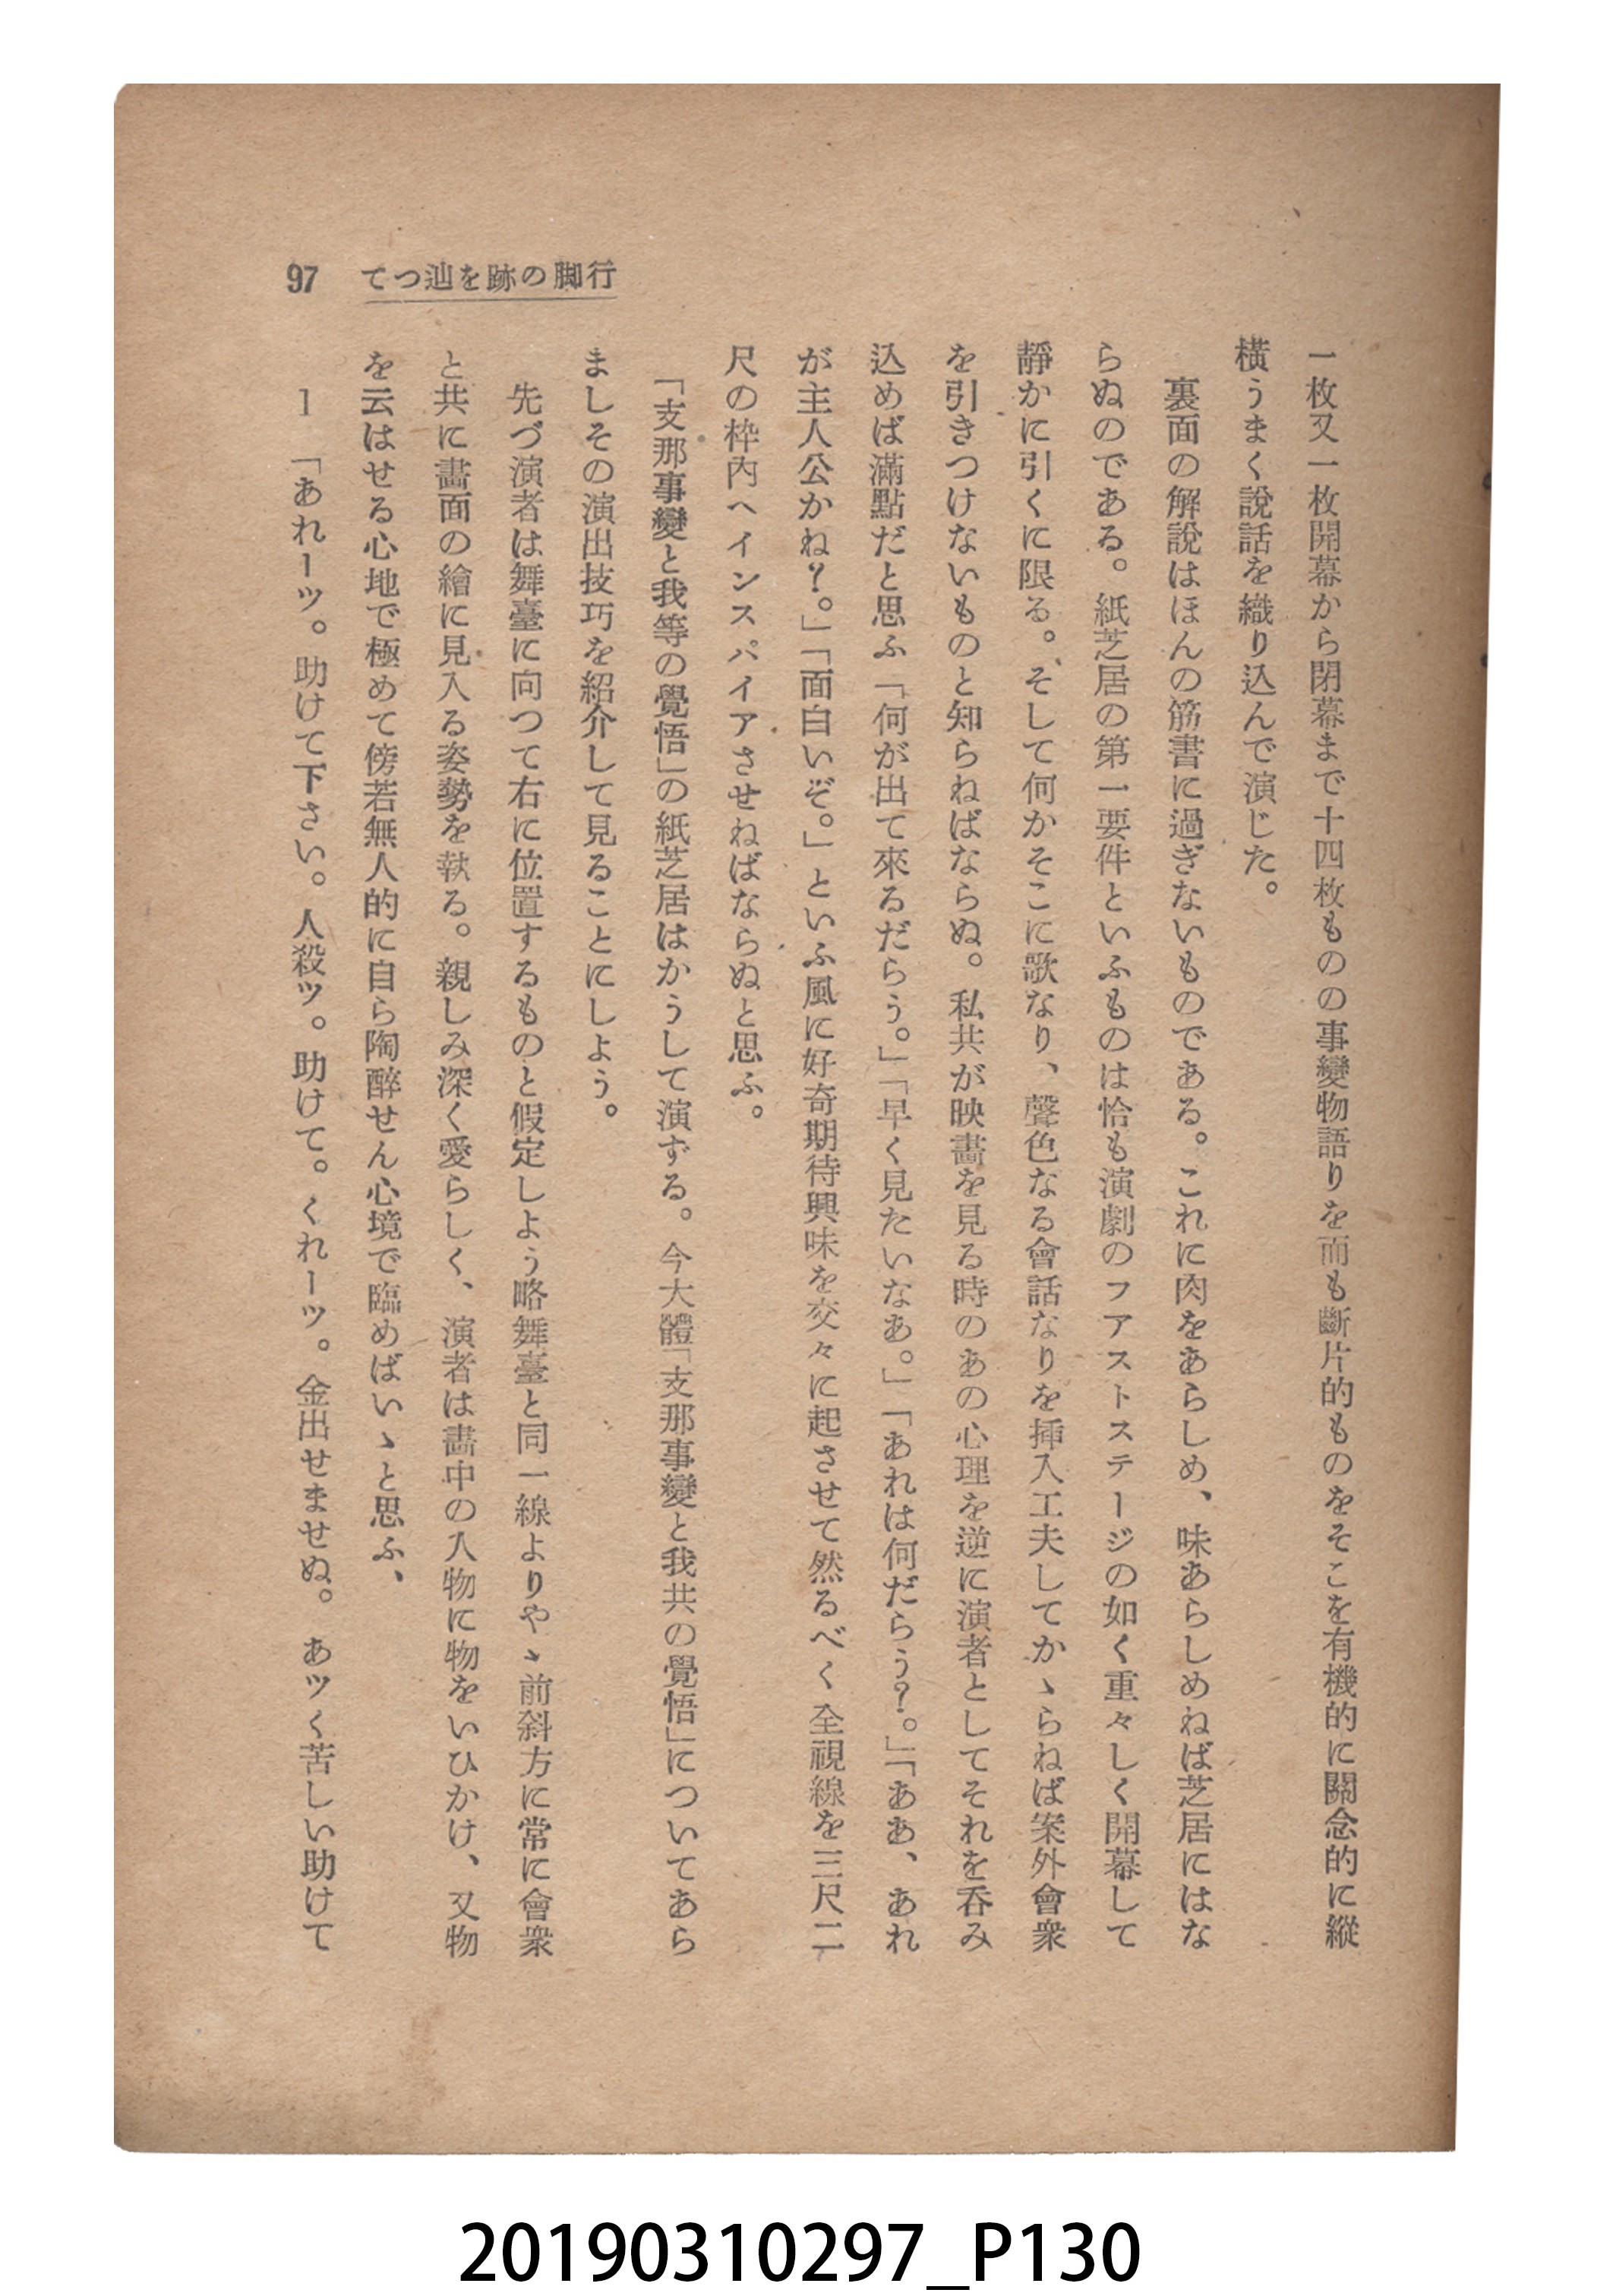 97 てつ辿を跡の脚行
一枚又一枚開幕から閉幕まで十四枚ものの事變物語りを而も斷片的ものをそこを有機的に關念的に縱
橫うまく說話を織り込んで演じた。
裏面の解說はほんの筋書に過ぎないものである。これに肉をあらしめ、味あらしめねば芝居にはな
らぬのである。紙芝居の第一要件といふものは恰も演劇のフアストステージの如く重々しく開幕して
靜かに引くに限る。そして何かそこに歌なり、聲色なる會話なりを挿入工夫してかゝらねば案外會衆
を引きつけないものと知らねばならぬ。私共が映畵を見る時のあの心理を逆に演者としてそれを呑み
込めば滿點だと思ふ「何が出て來るだらう。」「早く見たいなあ。」「あれは何だらう?。」「ああ、あれ
が主人公かね?。」「面白いぞ。」といふ風に好奇期待興味を交々に起させて然るべく全視線を三尺二
尺の枠內へインスパイアさせねばならぬと思ふ。
「支那事變と我等の覺悟」の紙芝居はかうして演ずる。今大體「支那事變と我共の覺悟」についてあら
ましその演出技巧を紹介して見ることにしよう。
先づ演者は舞臺に向つて右に位置するものと假定しよう略舞臺と同一線よりやゝ前斜方に常に會衆
と共に畵面の繪に見入る姿勢を執る。親しみ深く愛らしく、演者は畵中の人物に物をいひかけ、又物
を云はせる心地で極めて傍若無人的に自ら陶醉せん心境で臨めばいゝと思ふ、
1 「あれーッ。助けて下さい。人殺ッ。助けて。くれーッ。金出せませぬ。あッく苦しい助けて
20190310297_P130